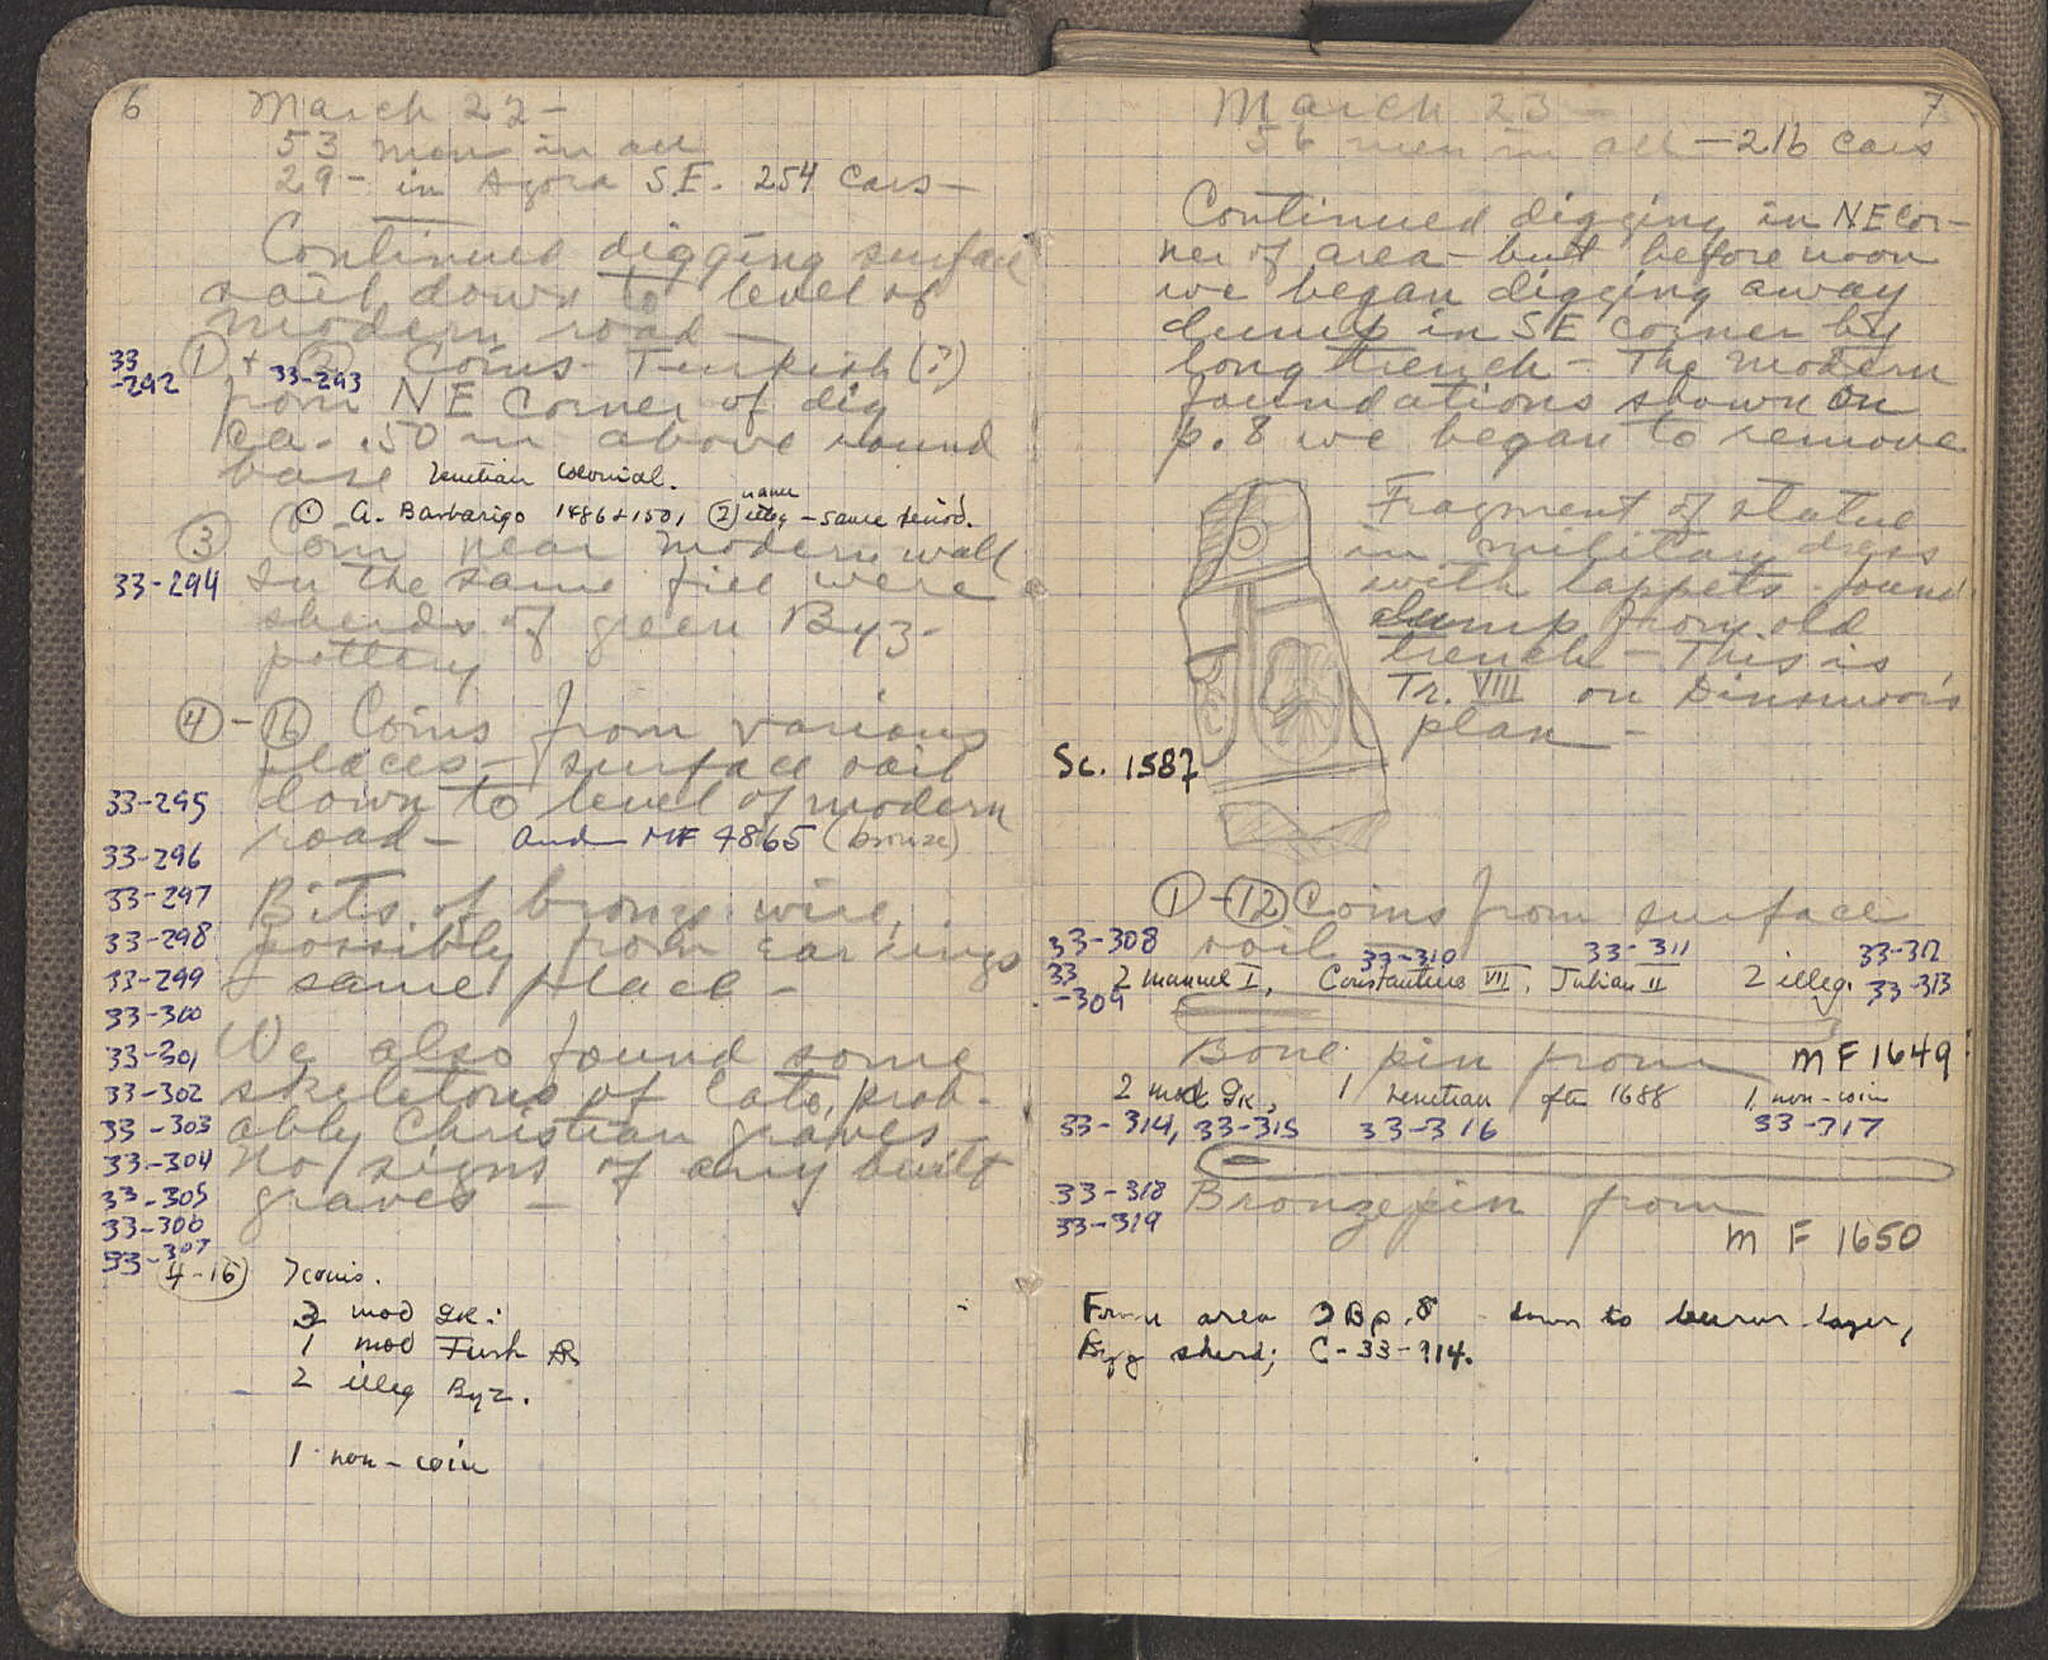 6
March 22 -
53 men in all
29 - in Agora S.E. 254 Cars -
Continued digging surface
soil, down to level of
modern road -
33-292 ① + ② 33-293 Coins - Turkish (?)
from NE Corner of dig
ca. .50 m above round
base Venetian Colonial.
① A. Barbarigo 1486-1501 ② name illeg - same period.
③ Coin near modern wall
33-294 In the same fill were
sherds of green Byz-
pottery
④ - ⑯ Coins from various
places - surface soil
33-295 down to level of modern
road - and MF 4865 (bronze)
33-296
33-297 Bits of bronze wire,
33-298 possibly from earrings
33-299 same place -
33-300
33-301 We also found some
33-302 skeletons of late, prob-
33-303 ably Christian graves -
33-304 No signs of any built
33-305 graves -
33-306
33-307
4-16 7 coins.
3 mod Gk:
1 mod Turk AR
2 illeg Byz.
1 non-coin
7
March 23 -
56 men in all - 216 Cars
Continued digging in NE Cor-
ner of area - but before noon
we began digging away
dump in SE corner by
long trench - The modern
foundations shown on
p. 8 we began to remove
Fragment of statue
in military dress
with lappets - found
dump from old
trench - This is
Tr. VIII on Dinsmoor's
plan -
Sc. 1587
① - ⑫ Coins from surface
33-308 soil 33-310 33-311 33-312
33-309 2 Manuel I, Constantine VII, Julian II 2 illeg. 33-313
Bone pin from MF 1649
2 mod Gk, 1 Venetian after 1688 1 non-coin
33-314, 33-315 33-316 33-317
33-318 Bronze pin from
33-319
MF 1650
From area p. 8 down to burnt layer,
Byz sherd; C-33-914.